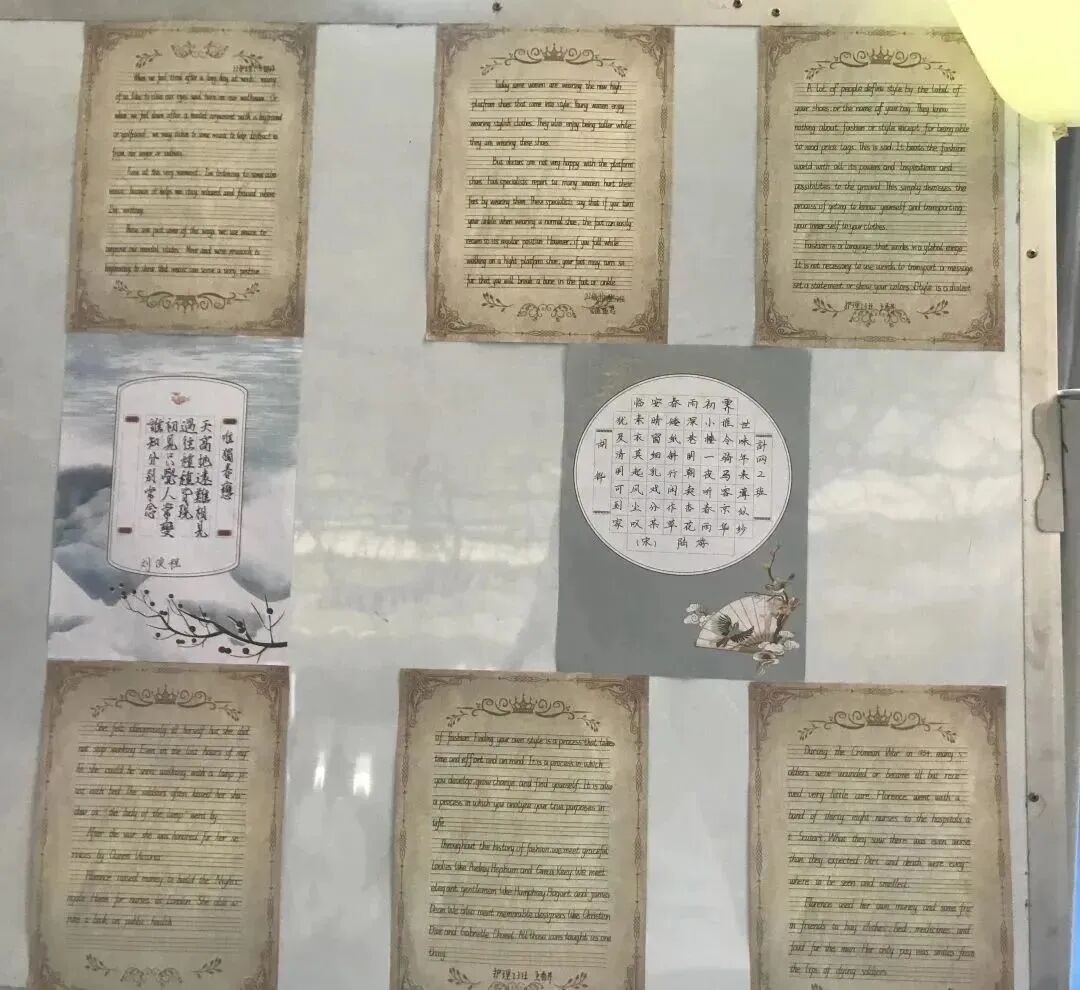 When we feel tired after a long day at work, many
of us like to close our eyes and turn on our walkman. Or
when we feel down after a heated argument with a boyfriend
or girlfriend, we may listen to some music to help distract us
from our anger or sadness.
Even at this very moment, I'm listening to some calm
music because it helps me stay relaxed and focused
I'm writing.
These are just some of the ways we use music to
improve our mental states. More and more research is
beginning to show that music can serve a very positive
Today some women are wearing the new high
platfrom shoes that come into style. Young women enjoy
wearing stylish clothes. They also enjoy being taller while
they are wearing these shoes.
But doctors are not very happy with the platform
shoes. Foot specialists report to many women hurt there
feet by wearing them. These specialists say that if you turn
your ankle when wearing a normal shoe, the foot can easily
return to its regular position. However, if you fall while
walking on a hight platform shoe, your foot may turn so
far that you will break a bone in the foot or ankle.
A lot of people define style by the label of
your shoes or the name of your bag. They know
nothing about fashion or style except for being able
to read price tags. This is sad. It beats the fashion
world with all its powers and inspirations and
possibilities to the ground. This simply dismisses the
process of geting to know yourself and transporting
your inner self to your clothes.
Fashion is a language that works in a global range.
It is not necessary to use words to transport a message
set a statement or show your colors. Style is a dialect
护理23班 王
唯獨春戀
天高地遠難相見
過往種種皆成
初見只覺人常變
誰知分別常念
刘 程
計网2班
世味年来薄似纱
霁谁令骑马客京华
初小楼一夜听春雨
雨深巷明朝卖杏花
春矮纸斜行闲作草
安晴窗细乳戏分茶
临素衣莫起风尘叹
犹及清明可到家
(宋) 陆游
胡
She felt dangerously ill herself but she did
not stop working. Even in the last hours of my
he she could be seen walking with a lamp pa-
ast each bed. The soldiers often kissed her sha-
dow as "the lady of the lamp" went by.
After the war she was honored for her se-
rvices by Queen Victoria.
Florence raised money to build the Nighti-
ngale Home for nurses in London. She also w-
rote a book on public health.
of fashion. Finding your own style is a process that takes
time and effort and an mind. It is a process in which
you develop, grow, change and find yourself. It is also
a process in which you analyze your true purposes in
life.
Throughout the history of fashion, we meet graceful
Ladies like Audrey Hepburn and Grace Kelly. We meet
elegant gentlemen like Humphrey Bogart and James
Dean. We also meet memorable designers like Christian
Dior and Gabrielle Chanel. All these icons taught us one
thing
护理23班 王
During the Crimean War in 1854, many s-
oldiers were wounded or became ill but rece-
ived very little care. Florence went with a
band of thirty eight nurses to the hospitals a-
t Scutari. What they saw there was even worse
than they expected. Dirt and death were every-
where to be seen and smelled.
Florence used her own money and some fro-
m friends to buy clothes, bed, medicines and
food for the men. Her only pay was smiles from
the lips of dying soldiers.